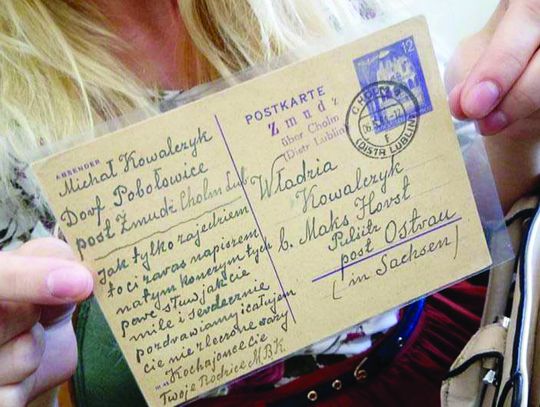 ABSENDER
Michał Kowalczyk
Dorf Pobołowice
post Żmudź Cholm Lub
Jak tylko zajedziem
to ci zaraz napiszem
na tym kończym tych
parę słów jak cię
mile i serdecznie
pozdrawiamy i całujem
cię niezleczone razy
Kochające Cię
Twoje Rodzice M B K
POSTKARTE
Zmudz
über Cholm
(Distr Lublin)
12
CHOLM
(DISTR LUBLIN)
Władzia
Kowalczyk
b. Maks Horst
post Ostrau
(in Sachsen)